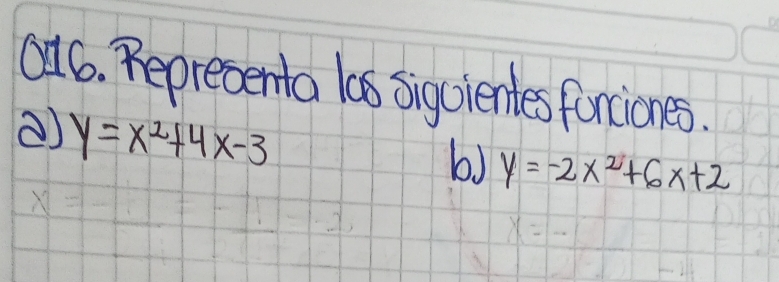 016. Representa las siguientes funciones.
a) y = x²+4x-3
b) y = -2x²+6x+2